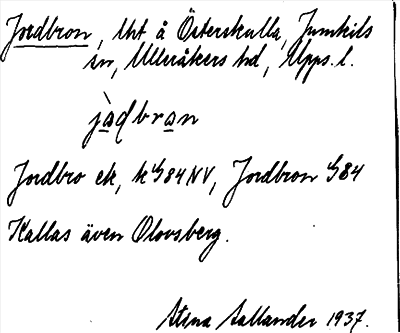 Jordbron, lht å Österskulla, Jumkils
sn, Ulleråkers hd, Upps. l.
jàdbran
Jordbro ek, k G84NV, Jordbron G84
Kallas även Olovsberg.
Stina Sallander 1937.